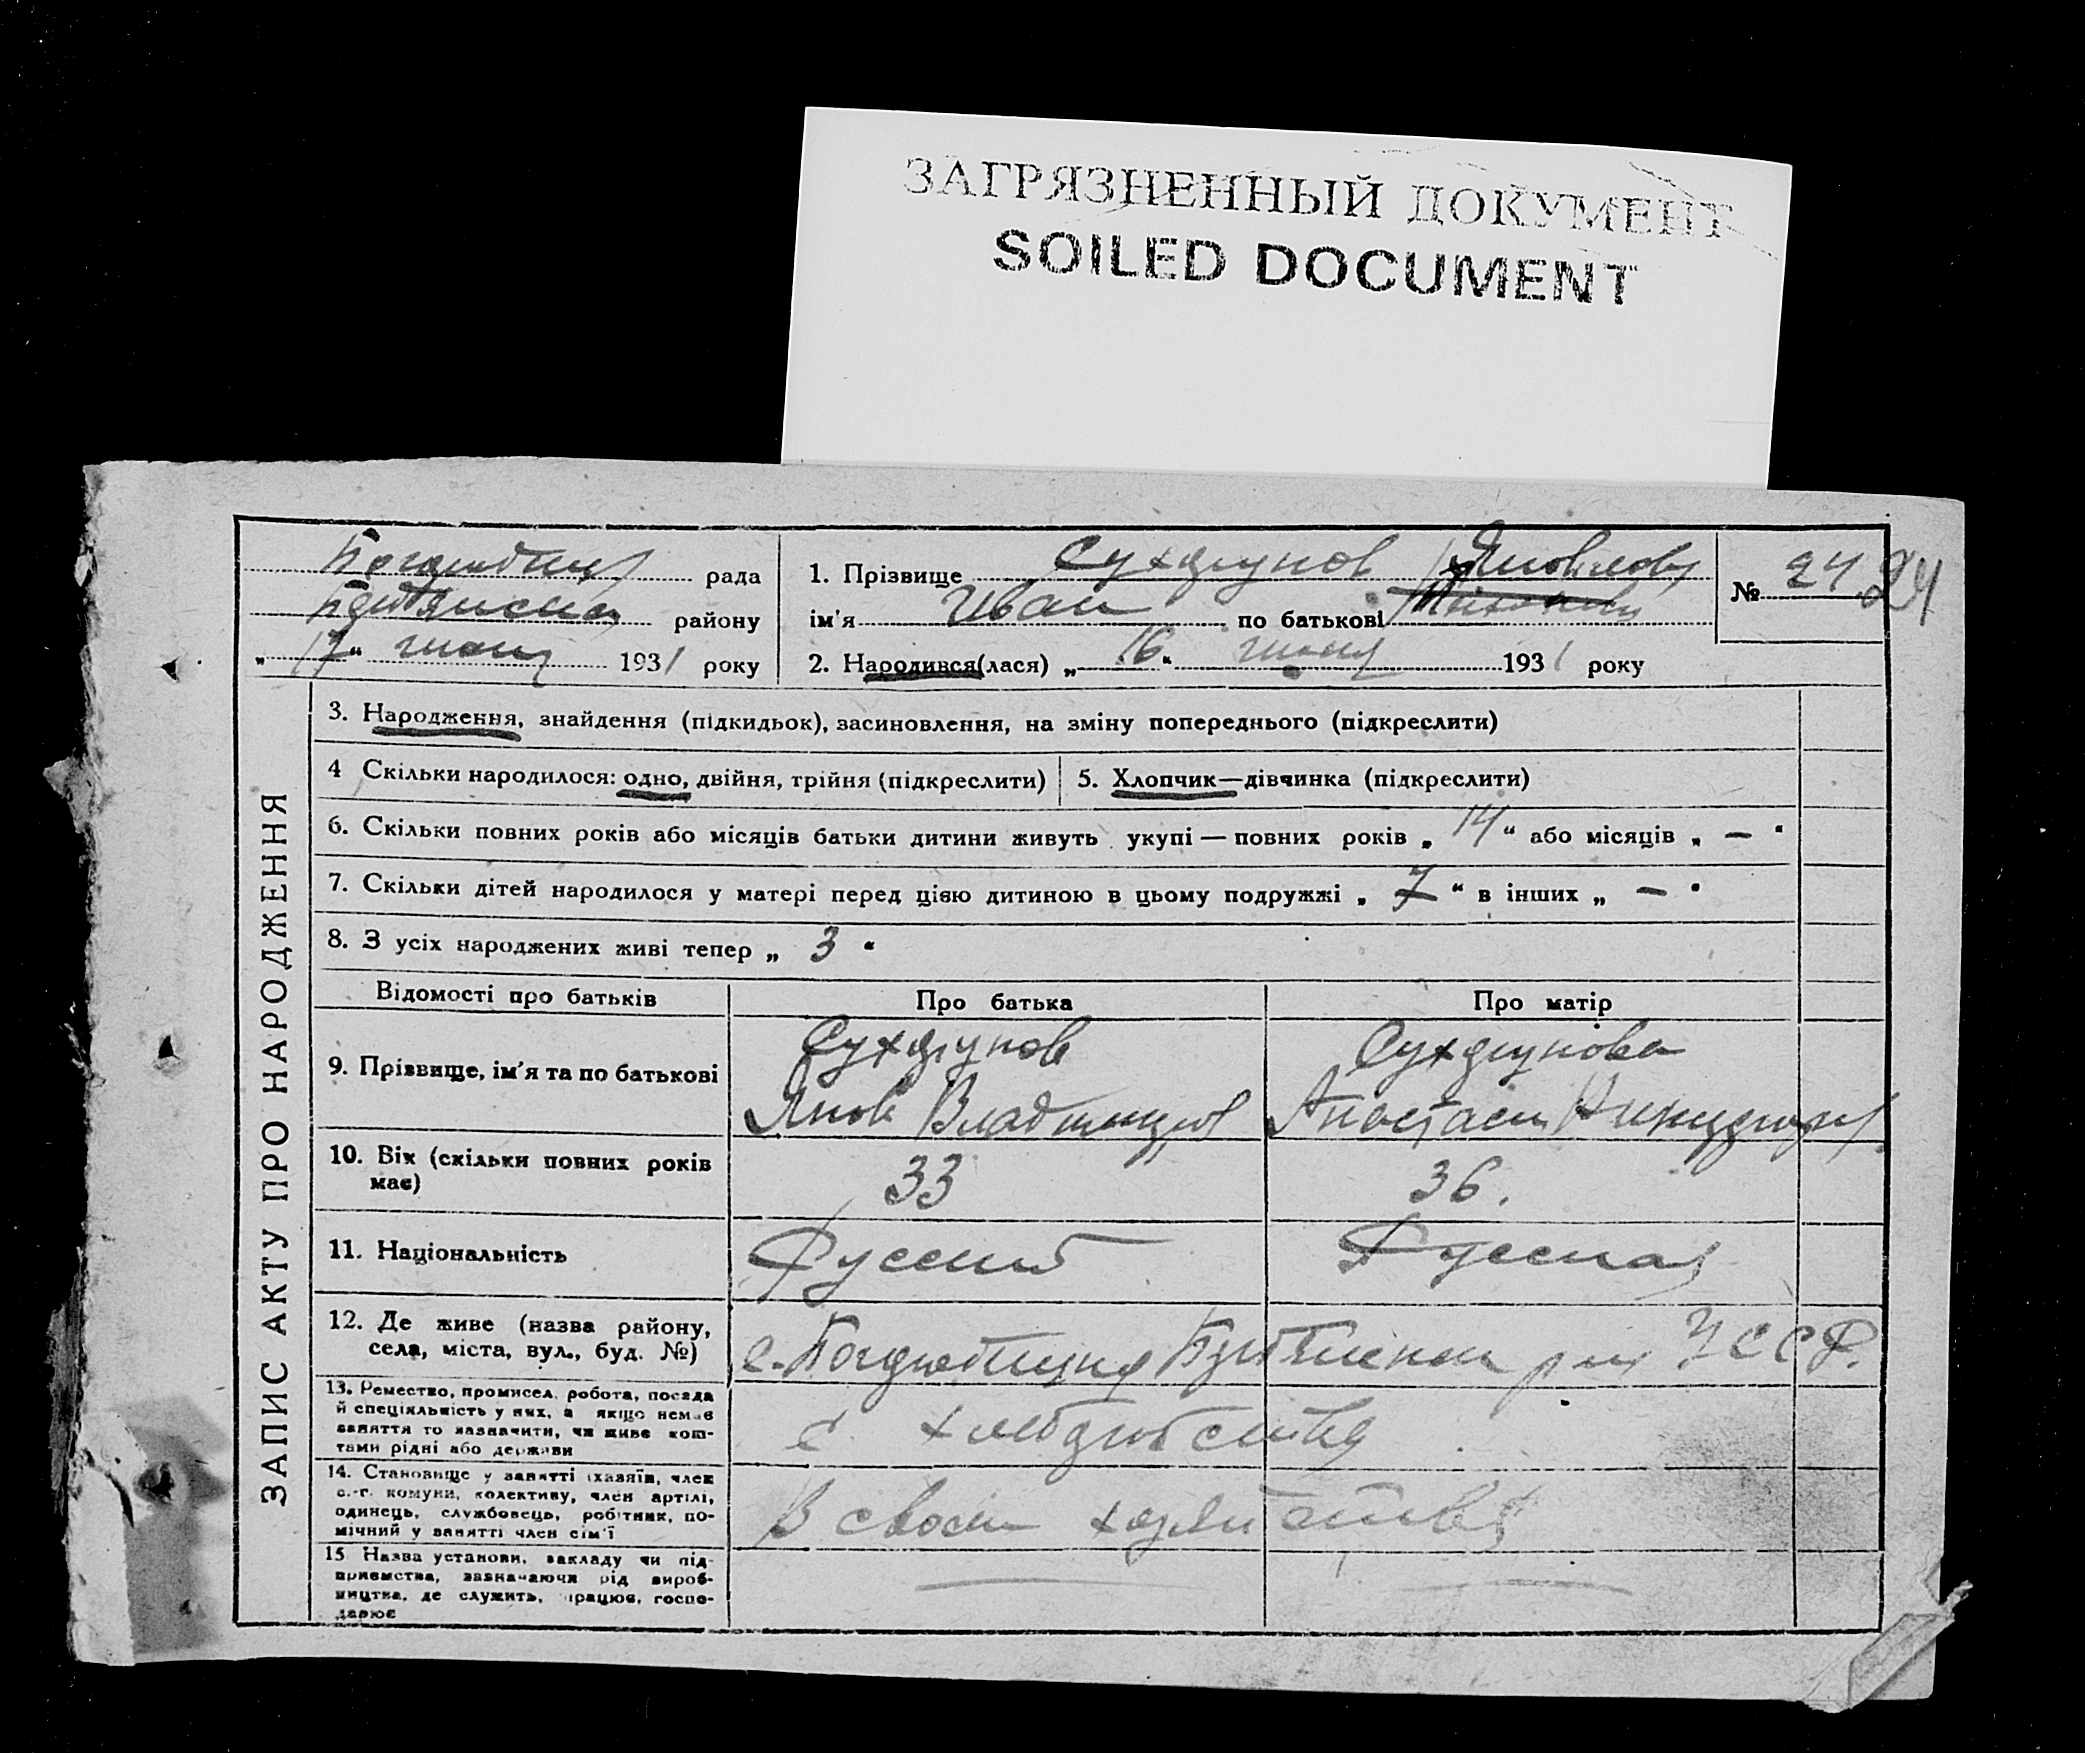 ЗАГРЯЗНЕННЫЙ ДОКУМЕНТ
SOILED DOCUMENT
рада
району
„17“ 1931 року
1. Прізвище Сухоруков Яковлев
ім'я Иван по батькові
№ 24 24
2. Народився(лася) „16“ 1931 року
ЗАПИС АКТУ ПРО НАРОДЖЕННЯ
3. Народження, знайдення (підкидьок), засиновлення, на зміну попереднього (підкреслити)
4 Скільки народилося: одно, двійня, трійня (підкреслити)
5. Хлопчик—дівчинка (підкреслити)
6. Скільки повних років або місяців батьки дитини живуть укупі — повних років „14“ або місяців „—“
7. Скільки дітей народилося у матері перед цією дитиною в цьому подружжі „7“ в інших „—“
8. З усіх народжених живі тепер „3“
Відомості про батьків
Про батька
Про матір
9. Прізвище, ім'я та по батькові
Сухоруков
Яков Владимиров
Сухорукова
Анастасия
10. Вік (скільки повних років має)
33
36.
11. Національність
Русский
Русская
12. Де живе (назва району,
села, міста, вул., буд. №)
с. УССР.
13. Ремество, промисел, робота, посада
й спеціяльність у них, а якщо немає
заняття то зазначити, чи живе кош-
тами рідні або держави
с. хлебробство
14. Становище у занятті (хазяїн, член
с.-г. комуни, колективу, член артілі,
одинець, службовець, робітник, по-
мічний у занятті член сім'ї
В своем хозяйстве
15 Назва установи, закладу чи під-
приємства, зазначаючи рід вироб-
ництва, де служить, працює, госпо-
дарює